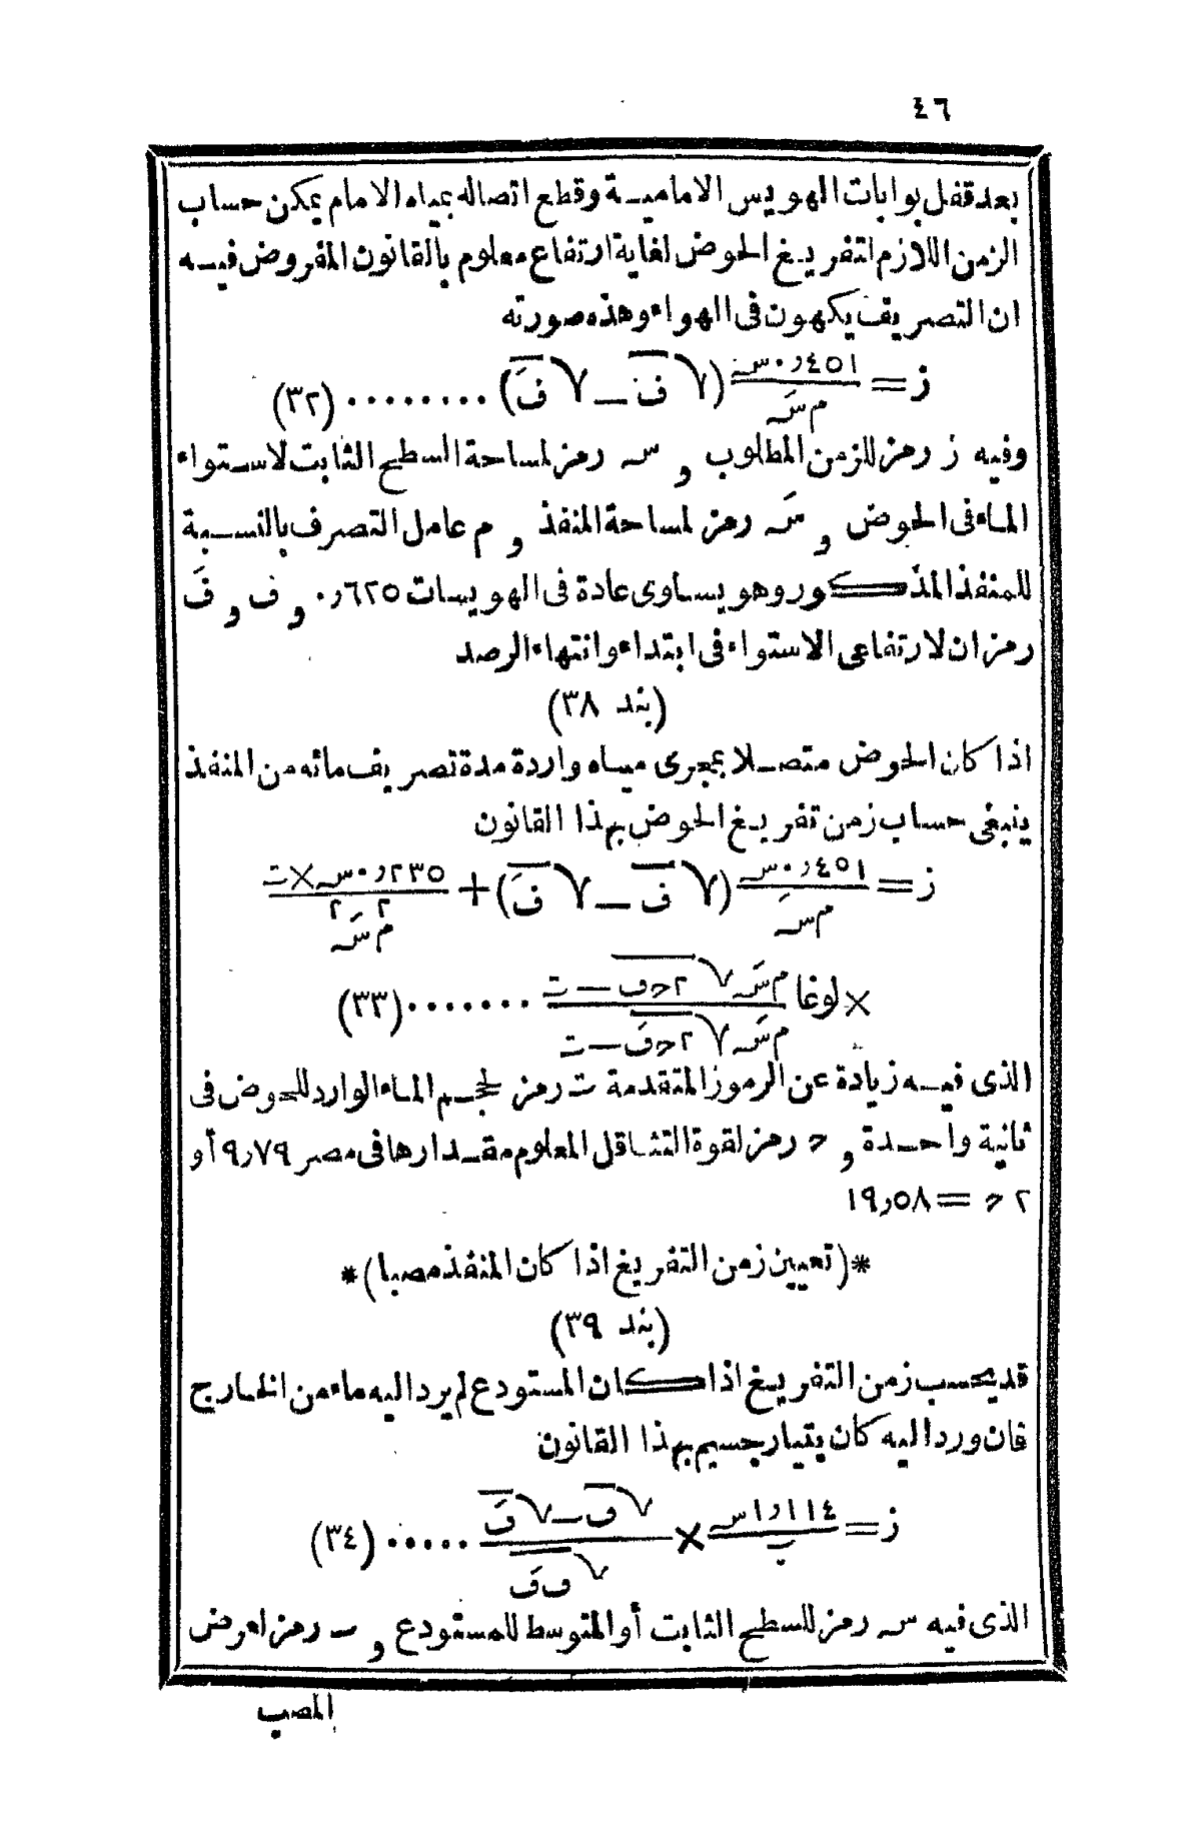 ٤٦
بعد قفل بوابات الهويس الامامية وقطع اتصاله بمياه الامام يمكن حساب
الزمن اللازم لتفريغ الحوض لغاية ارتفاع معلوم بالقانون المفروض فيه
ان التصريف يكون فى الهواء وهذه صورته
ز = ٠٫٤٥١ س / م سَ (√ف − √فَ) ········ (٣٢)
وفيه ز رمز للزمن المطلوب و س رمز لمساحة السطح الثابت لاستواء
الماء فى الحوض و سَ رمز لمساحة المنفذ و م عامل التصرف بالنسبة
للمنفذ المذكور وهو يساوى عادة فى الهويسات ٠٫٦٢٥ و ف و فَ
رمزان لارتفاعى الاستواء فى ابتداء وانتهاء الرصد
(بند ٣٨)
اذا كان الحوض متصلا بمجرى مياه واردة مدة تصريف مائه من المنفذ
ينبغى حساب زمن تفريغ الحوض بهذا القانون
ز = ٠٫٤٥١ س / م سَ (√ف − √فَ) + ٠٫٢٣٥ س × ت / م٢ سَ٢
× لوغا م سَ √٢حف − ت / م سَ √٢حفَ − ت ······· (٣٣)
الذى فيه زيادة عن الرموز المتقدمة ت رمز لحجم الماء الوارد للحوض فى
ثانية واحدة و ح رمز لقوة التثاقل المعلوم مقدارها فى مصر ٩٫٧٩ أو
٢ ح = ١٩٫٥٨
*(تعيين زمن التفريغ اذا كان المنفذ مصبا)*
(بند ٣٩)
قد يحسب زمن التفريغ اذا كان المستودع لم يرد اليه ماء من الخارج
فان ورد اليه كان بتيار جسيم بهذا القانون
ز = ١٫١١٤ س / ب × √ف − √فَ / √ف فَ ····· (٣٤)
الذى فيه س رمز للسطح الثابت أو المتوسط للمستودع و ب رمز لعرض
المصب